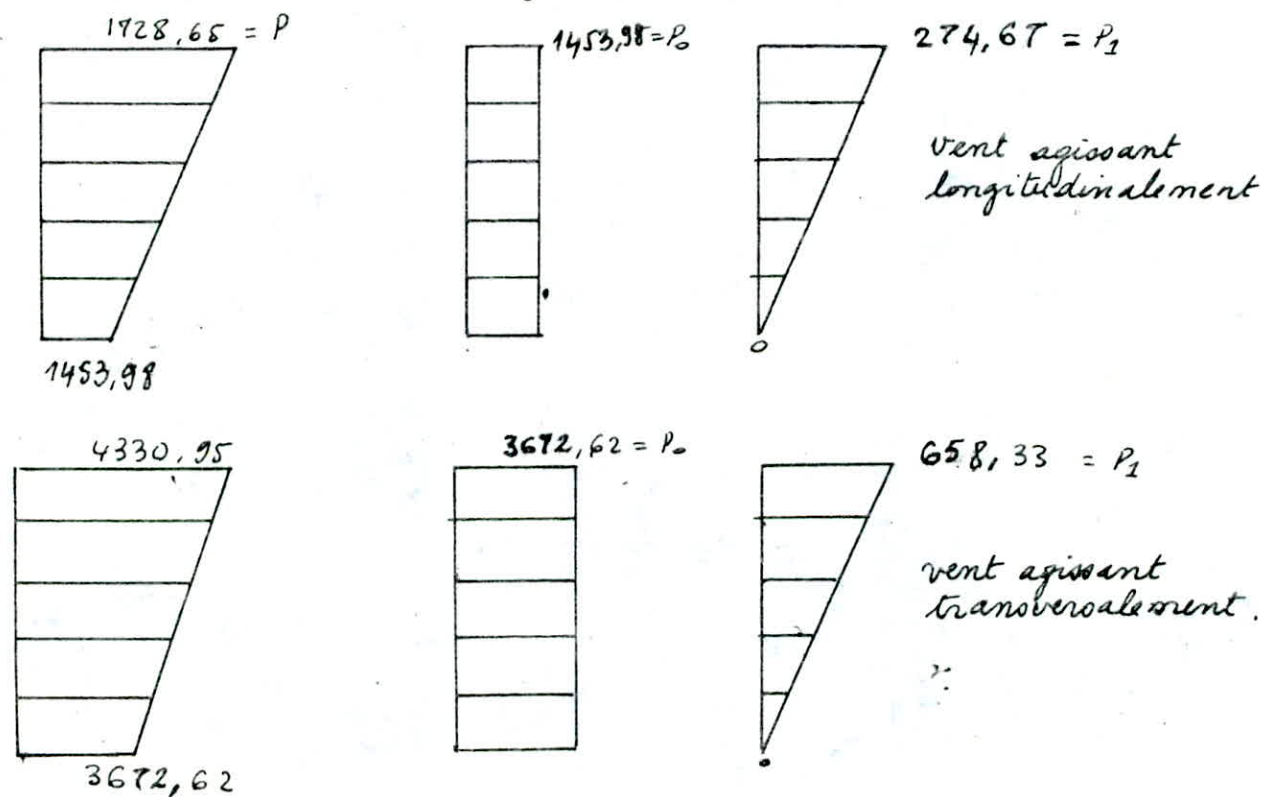 1728,65 = P
1453,98 = P₀
274,67 = P₁
vent agissant
longitudinalement
0
1453,98
4330,95
3672,62 = P₀
658,33 = P₁
vent agissant
transversalement.
0
3672,62